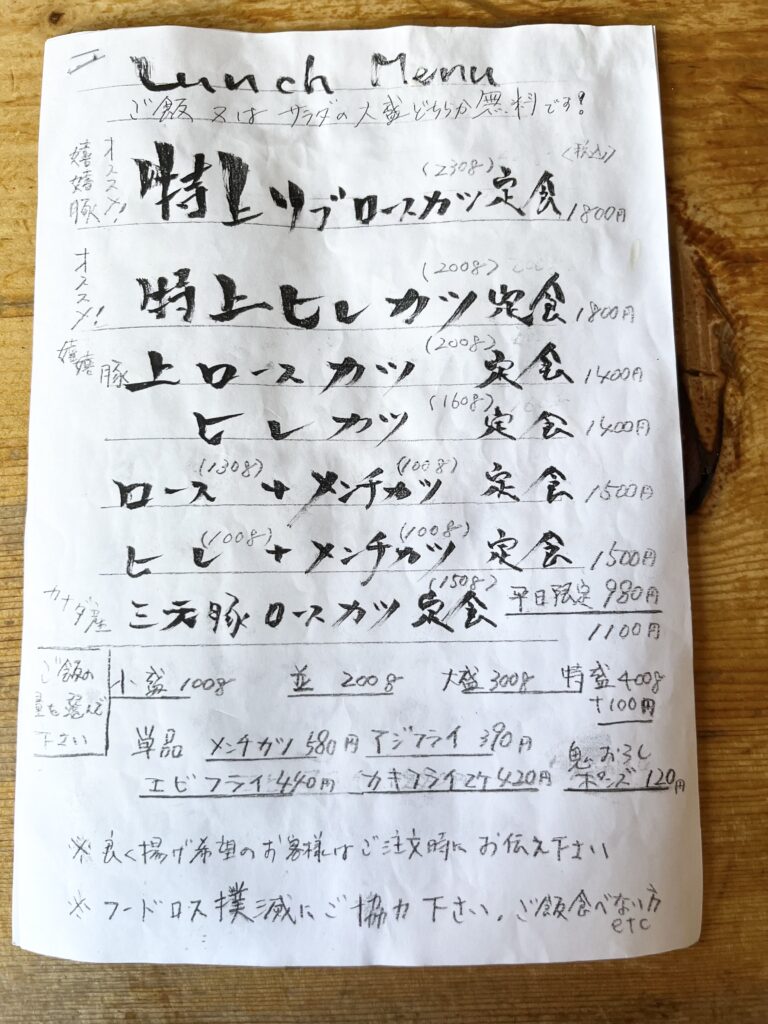 Lunch Menu
ご飯又はサラダの大盛どちらか無料です!
嬉嬉豚 オススメ! 特上リブロースカツ定食 (230g) 1800円 (税込)
オススメ! 特上ヒレカツ定食 (200g) 1800円
嬉嬉豚 上ロースカツ定食 (200g) 1400円
ヒレカツ定食 (160g) 1400円
ロース (130g) + メンチカツ (100g) 定食 1500円
ヒレ (100g) + メンチカツ (100g) 定食 1500円
カナダ産 三元豚ロースカツ定食 (150g) 平日限定 980円
1100円
ご飯の
量を選んで
下さい
小盛 100g 並 200g 大盛 300g 特盛 400g
+100円
単品 メンチカツ 580円 アジフライ 390円
エビフライ 440円 カキフライ2ケ 420円
鬼おろし
ポンズ 120円
※ 良く揚げ希望のお客様はご注文時にお伝え下さい
※ フードロス撲滅にご協力下さい。ご飯食べない方
etc